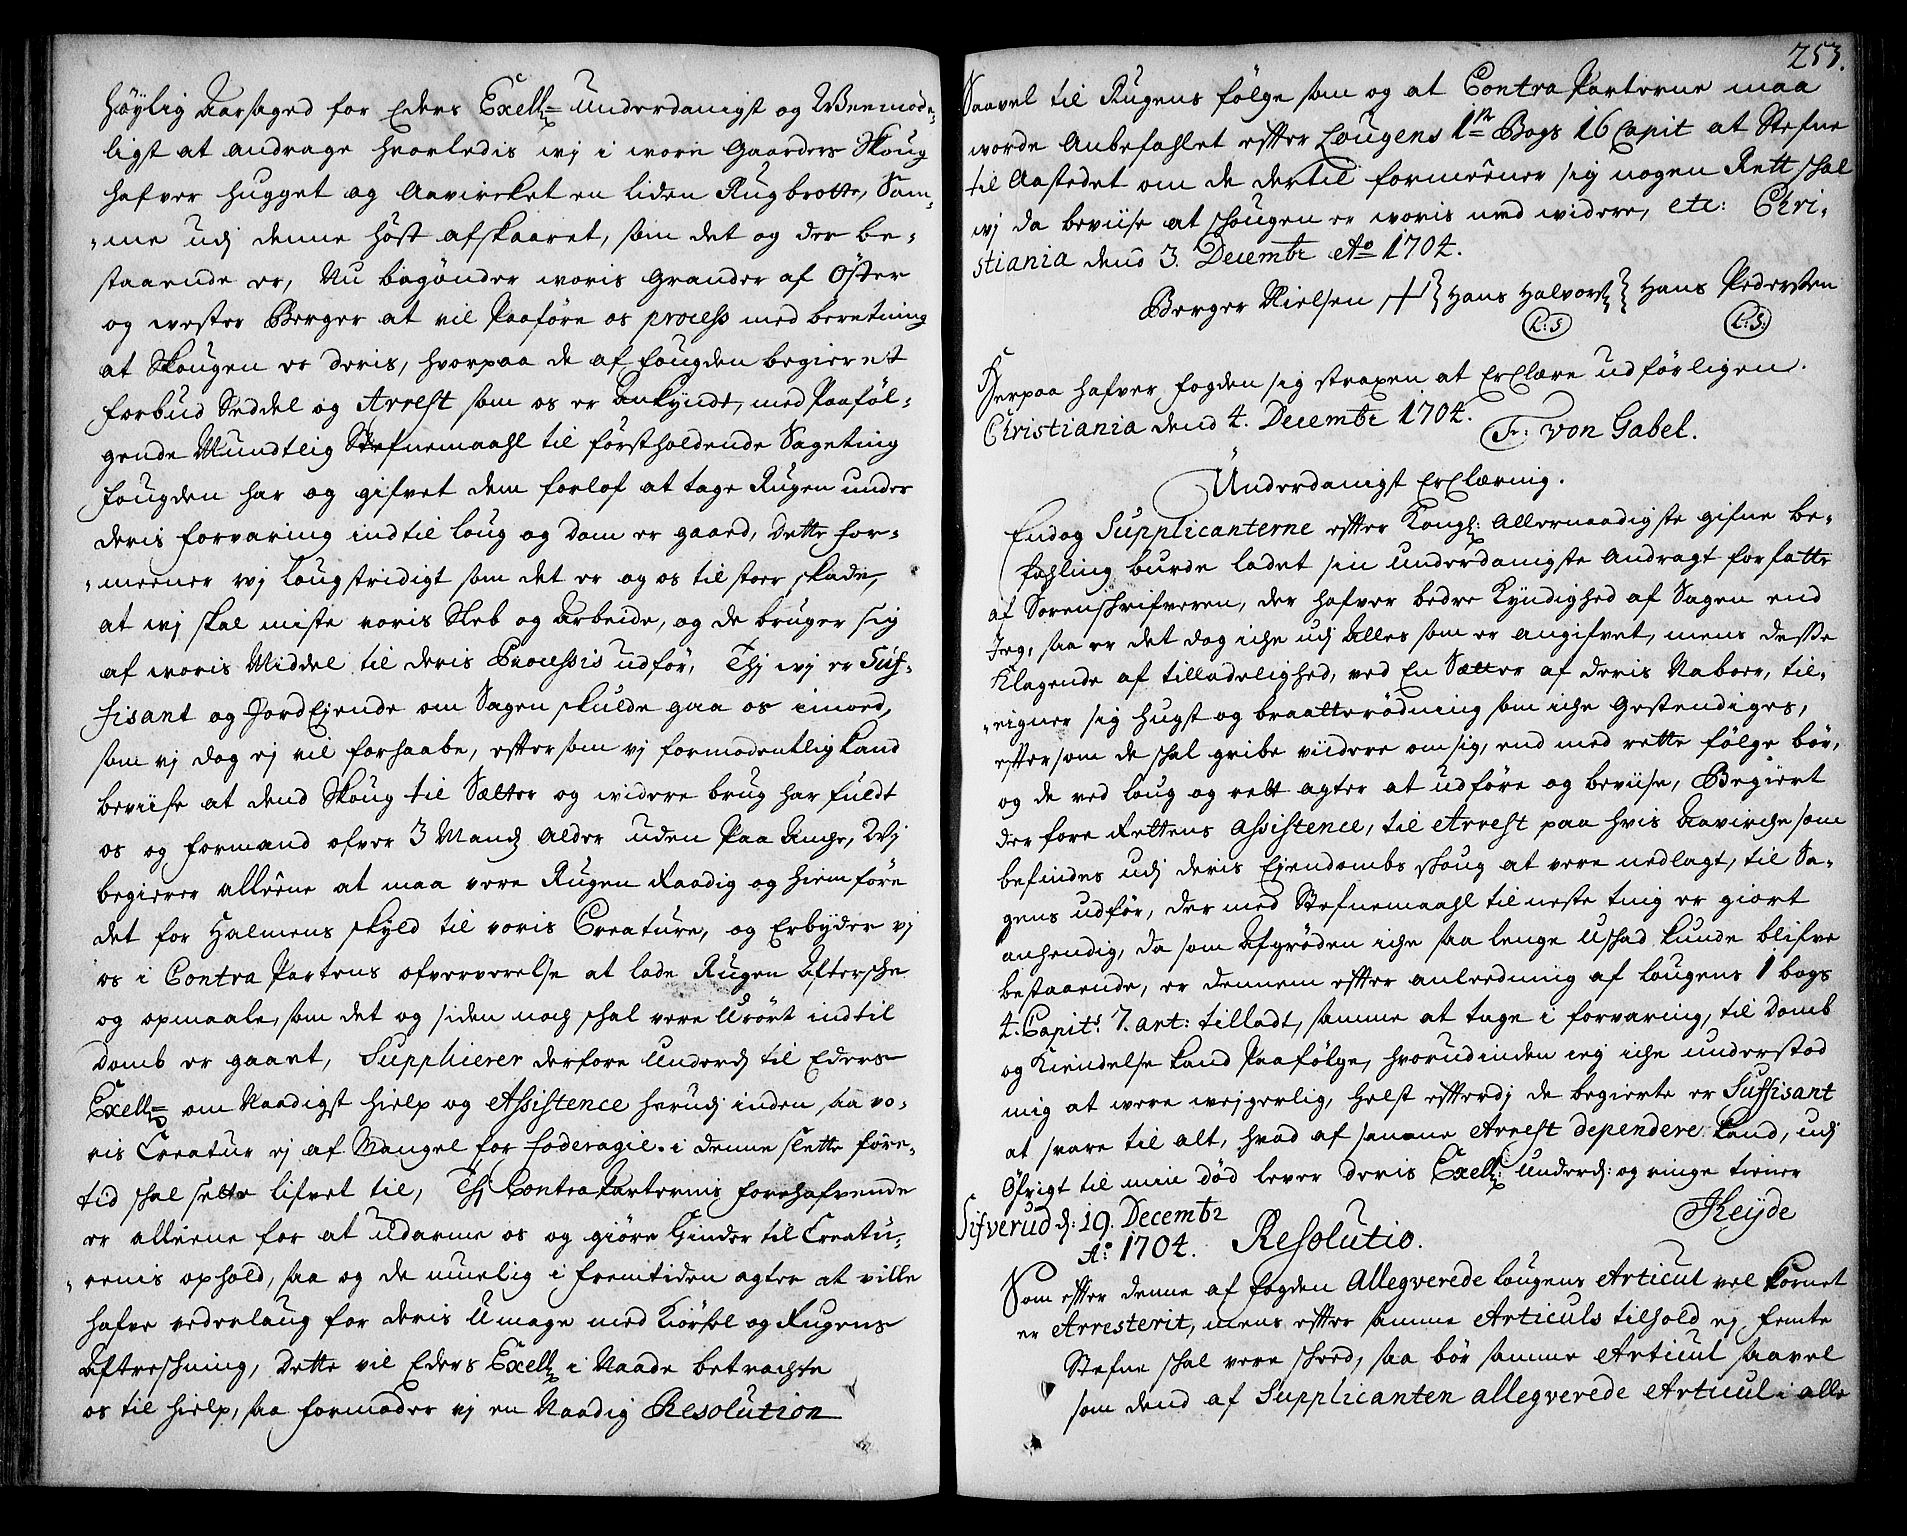 höylig Aarsaged for Eders Excell: Underdanigst og Weemode-
ligst at andrage hvorledis wj i worn Gaarders Skoug
hafver hugget og Aavircket en liden Rugbrotte, Sam-
me udj denne Höst afskaaret, som det og der be-
staaende er, Nu begynder woris Grander af Öster
og wester Berger at vil Paaföre os process med beretning
at Skougen er deris, hvorpaa de af fougden begieret
forbud Seddel og Arrest som os er ankyndt, med Paaföl-
gende Mundtlig Stefnemaahl til förstholdende Sageting
fougden har og gifvet dem forlof at tage Rugen under
deris forvaring indtil loug og dom er gaaed, Dette for-
meener wj lougstridigt som det er og os til stoer skade,
at wj skal miste voris Sleb og Arbeide, og de bruger sig
af woris Middel til deris Processis udför, Thj wj er Suf-
fisant og Jord Ejende om Sagen skulde gaa os imoed,
som vj dog ej vil forhaabe, eftersom vj formodentlig kand
beviise at dend Skoug til Sætter og widere brug har fuldt
os og formand ofver 3 Mands Alder uden Paa Ancke, Wj
begierer alleene at maa vere Rugen Raadig og hiemföre
det for Halmens skyld til voris Creature, og Erbyder vj
os i Contra Partens ofververelse at lade Rugen Aftersche
og opmaale, som det og siden noch skal vere Urört indtil
domb er gaaet, Supplierer derfore Underdj til Eders
Excell: om Naadigst hielp og Assistence herudj inden, saa vo-
ris Creatur ej af Mangel for foderagie i denne slette före-
tid skal sette lifvet til, Thj Contra Parternis forehafvende
er alleene for at udarme os og giöre Hinder til Creatu-
rernis ophold, saa og de muelig i fremtiden agter at ville
hafve vederlaug for deris Umage med Kiörsel og Rugens
Aftreskning, Dette vil Eders Excell: i Naade betrachte
os til hielp, saa formoder vj en Naadig Resolution
253.
Saavel til Rugens fölge som og at Contra Parterne maa
worde Anbefahlet efter Lougens 1te Bogs 16 Capit at Stefne
til Aastedet om de dertil formeener sig nogen Rett skal
wj da beviise at skougen er woris med widere, etc: Chri-
stiania dend 3. Decembr Ao 1704.
Berger Nielsen + } Hans Halvors: } Hans Pedersen
L:S L:S:
Herpaa hafver fogden sig straxen at Erclære udförligen.
Christiania dend 4. Decembr 1704.
Fr: von Gabel.
Underdanigst Erclæring.
Endog Supplicanterne efter Kongl: Allernaadigste gifne be-
fahling burde ladet sin underdanigste Andragt forfatte
af Sorenskrifveren, der hafver bedre Kyndighed af Sagen end
Jeg, saa er det dog iche udj Alles som er angifvet, mens desse
Klagende af tilladelighed, ved En Sætter af deris Naboer, til-
eigner sig hugst og braatterödning som iche gestendiges,
eftersom de skal gribe viidere om sig, end med rette fölge bör,
og de ved loug og rett agter at udföre og beviise, Begiert
derfore Rettens Assistence, til Arrest paa hvis Aavirche som
befindes udj deris Eiendombs skoug at vere nedlagt, til Sa-
gens udför, der med Stefnemaahl til neste ting er giort
anhendig, da som Afgröden iche saa lenge Uskad kunde blifve
bestaaende, er dennem efter anledning af lougens 1 bogs
4. Capits 7. art: tilladt, samme at tage i forvaring, til Domb
og Kiendelse kand Paafölge, hvorudinden ieg iche understod
mig at were wejgerlig, helst efterdj de begierte er Suffisant
at svare til alt, hvad af samme Arrest dependere kand, udj
Öfrigt til min död lever deris Excell: Underdj: og ringe tiener
Sifverud d: 19. Decembr
Ao 1704.
Heyde
Resolutio.
Som efter denne af fogden Allegverede lougens Articul vel kornet
er Arresterit, mens efter samme Articuls tilhold ej femte
Stefne skal vere skeed, saa bör samme Articul saavel
som dend af Supplicanten allegverede Articul i alle